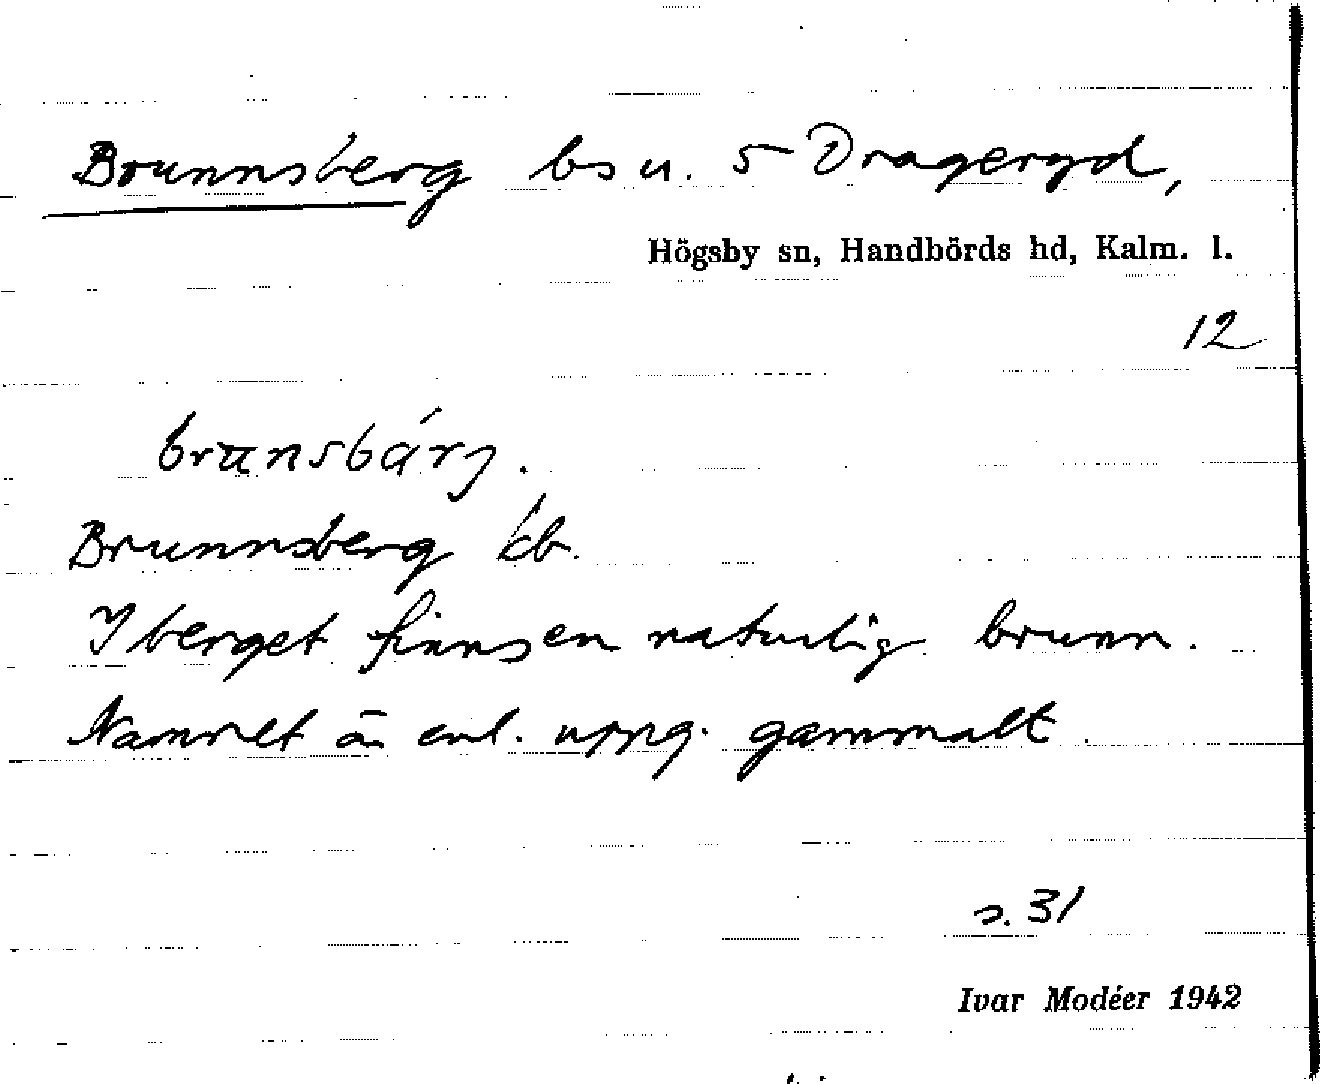 Brunnsberg bs u. 5 Dragergd,
Högsby sn, Handbörds hd, Kalm. l.
12
brunsbárj.
Brunnsberg kb.
I berget finns en naturlig brunn.
Namnet är enl. uppg. gammalt.
s. 31
Ivar Modéer 1942